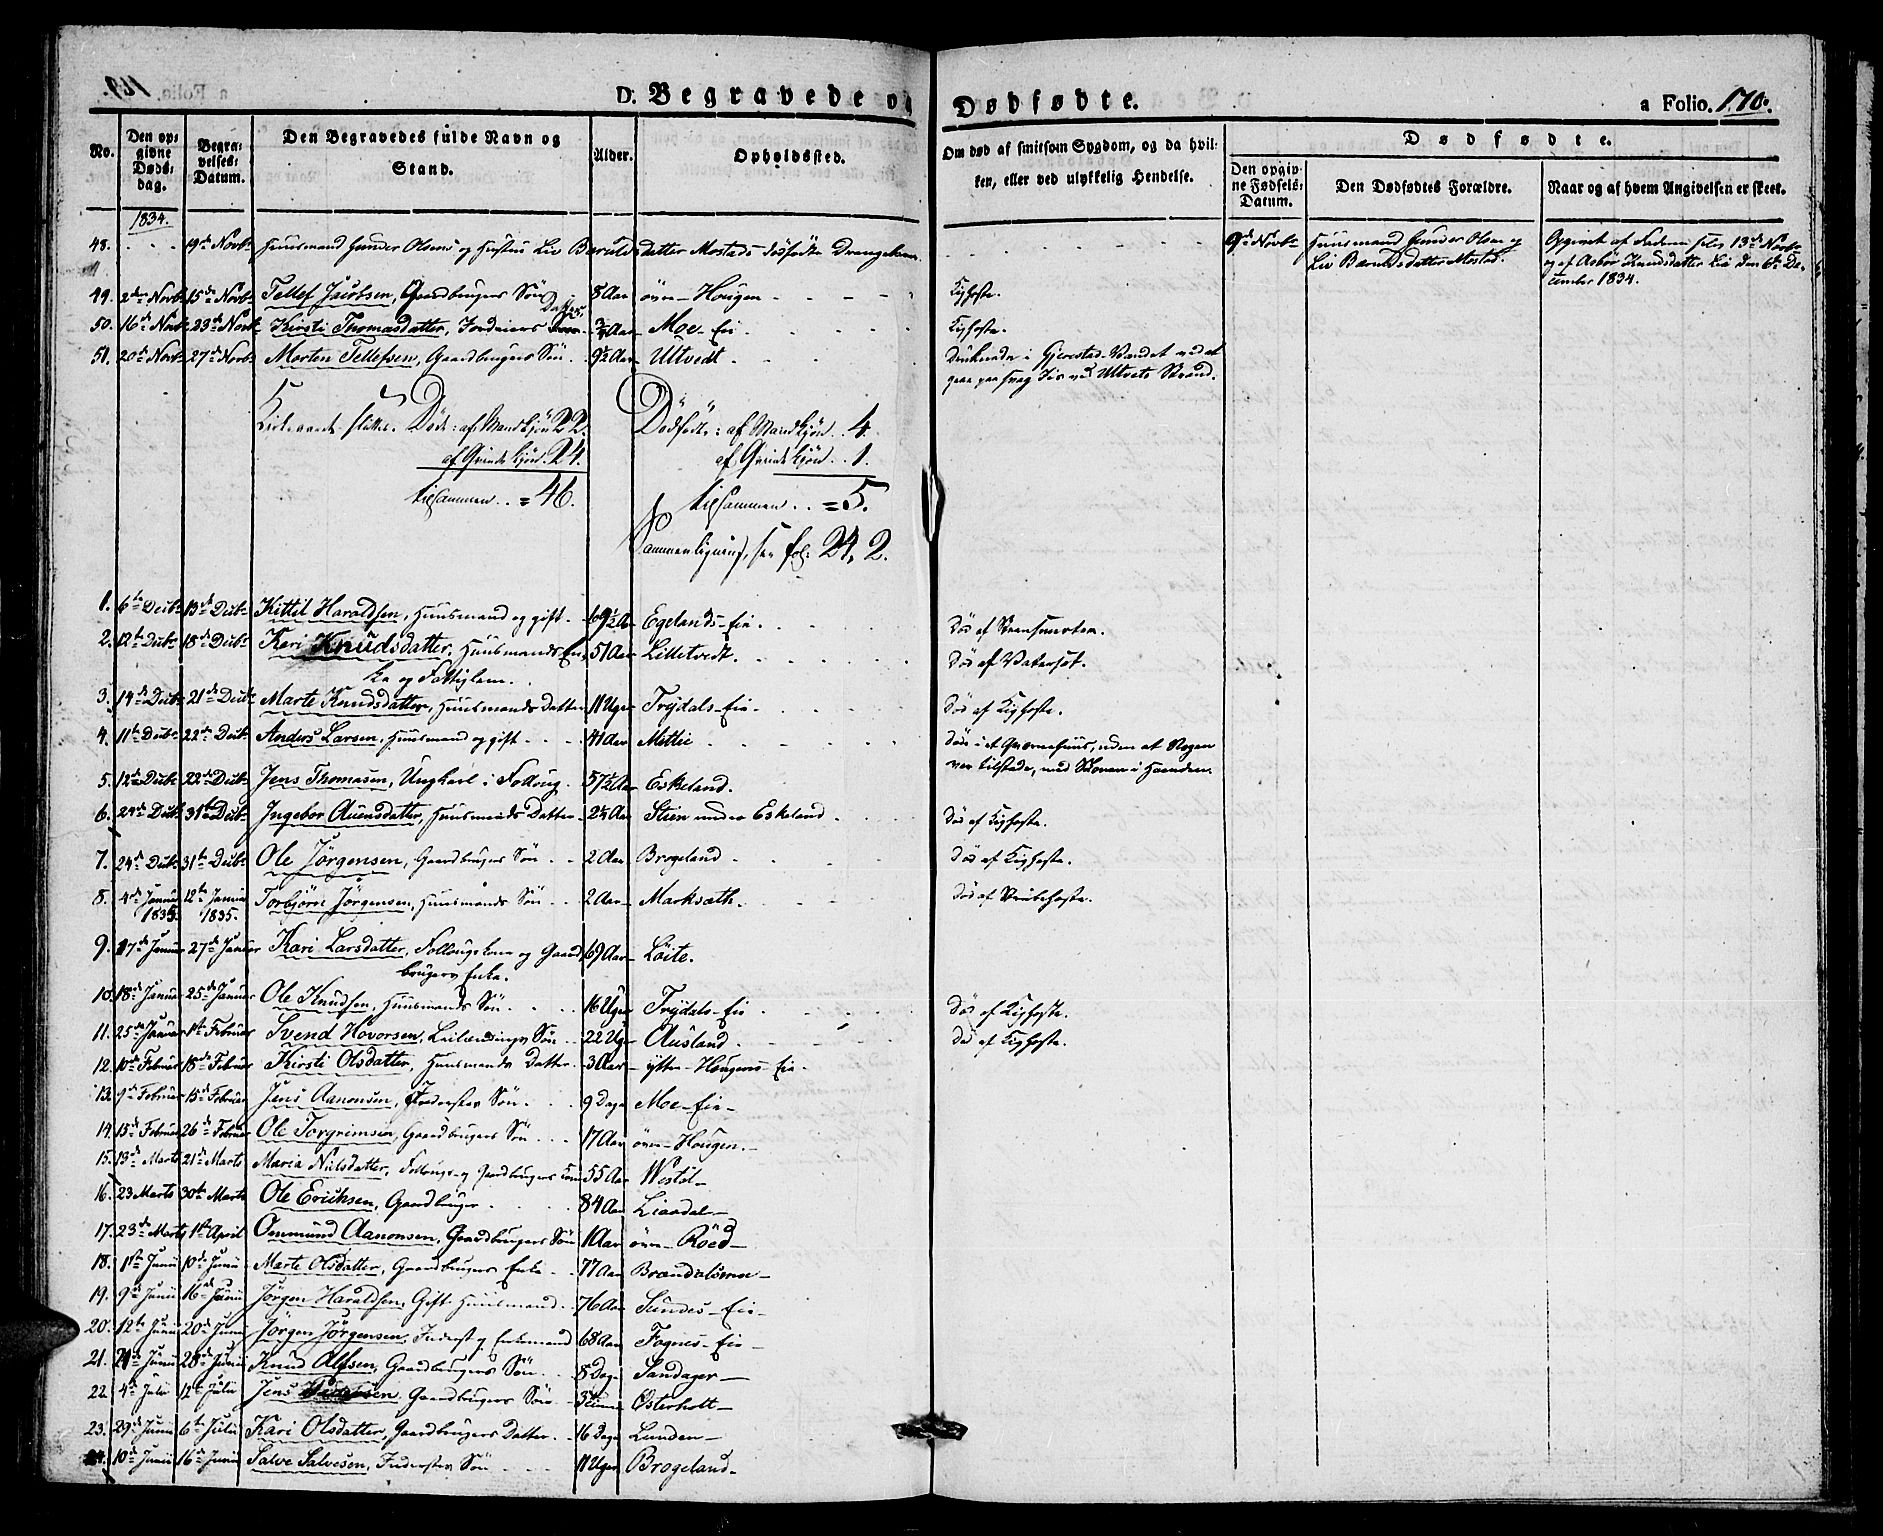 D. Begravede og Dødfødte. a Folio. 170.
No. Den opgivne Døds-dag. Begravelses-Datum. Den Begravedes fulde Navn og Stand. Alder. Opholdssted. Om død af smitsom Sygdom, og da hvilken, eller ved ulykkelig Hendelse. Dødfødte.
Den opgivne Fødsels-Datum. Den Dødfødtes Forældre. Naar og af hvem Angivelsen er skeet.
1834.
48. 19de Novbr Huusmand Gunder Olsens og Hustru Liv Berulds datter Mostads dødfødte Drengebarn. 9de Novbr Huusmand Gunder Olsen og Opgivet af Faderen selv 13de Novbr
Liv Berulds datter Mostad. og af Aasbør Knudsdatter Lie den 6te De-
cember 1834.
49. 2den Novbr 15de Novbr Tellef Jacobsen, Gaardbrugers Søn 8 Aar øvre-Hougen Kighoste.
50. 16de Novbr 23de Novbr Kirsti Thomasdatter, Inderstes Datter. 3/4 Aar Moe-Eie Kighoste.
51. 20de Novbr 27de Novbr Morten Tellefsen, Gaardbrugers Søn 9½ Aar Ultvedt Druknede i Gjerestad-Vandet ved at
gaae paa svag Iis ved Ultvets Strand.
Kirkeaaret sluttet. Døde: af Mandkjøn 22. Dødfødte: af Mandkjøn 4.
af Qvindekjøn. 24. af Qvindekjøn 1.
tilsammen = 46. tilsammen = 5.
Sammenligning, see fol: 24, 2.
1. 6te Decbr 13de Decbr Kittil Haraldsen, Huusmand og gift 69½ A Egelands-Eie Død af
2. 12te Decbr 18de Decbr Kari Knudsdatter, Huusmands En- 51 Aar Lilletvedt. Død af Vatersot.
ke og Fattiglem.
3. 14de Decbr 21de Decbr Marte Knudsdatter, Huusmands Datter 11 Uger Trydals-Eie Død af Kighoste.
4. 11te Decbr 22de Decbr Anders Larsen, Huusmand og gift 41 Aar Mitlie Døde i et Qværnehuus, uden at Nogen
var tilstede, med Skoen i Haanden.
5. 12te Decbr 22de Decbr Jens Thomasen, Ungkarl i Folloug. 57½ Aar Eskeland.
6. 24de Decbr 31te Decbr Ingebor Auensdatter, Huusmands Datter 2¼ Aar Stien under Eskeland Død af Kighoste.
7. 24de Decbr 31te Decbr Ole Jörgensen, Gaardbrugers Søn 2 Aar Brogeland Død af Kighoste.
8. 4de Januar 12te Januar Torbjörn Jörgensen, Huusmands Søn 2 Aar Marksæth. Død af Strubehoste.
1835. 1835.
9. 17de Januar 27de Januar Kari Larsdatter, Follougskone og Gaard- 69 Aar Løite.
brugers Enke.
10. 18de Januar 25de Januar Ole Knudsen, Huusmands Søn 16 Uger Trydals-Eie Død af Kighoste.
11. 25de Januar 1ste Februar Svend Hovorsen, Leilændings Søn 22 Uger Ausland Død af Kighoste.
12. 10de Februar 18de Februar Kirsti Olsdatter, Huusmands Datter 3 Aar ytter-Hougens-Eie
13. 9de Februar 15de Februar Jens Aanonsen, Inderstes Søn 9 Dage Moe-Eie
14. 15de Februar 26de Februar Ole Torgrimsen, Gaardbrugers Søn 17 Aar øvre-Hougen.
15. 13de Marts 21de Marts Maria Nilsdatter, Follougs- og Gaardbrugers Kone 55 Aar Westøl
16. 23 Marts 30te Marts Ole Erichsen, Gaardbruger 84 Aar Liaadal
17. 23de Marts 1ste April Ommund Aanonsen, Gaardbrugers Søn 1 Aar øvre-Röed
18. 1ste Junii 10de Junii Marte Olsdatter, Gaardbrugers Enke 77 Aar Brændalsmoe
19. 9de Junii 16de Junii Jörgen Haraldsen, Gift Huusmand 76 Aar Sundes-Eie
20. 12te Junii 20de Junii Jörgen Jörgensen, Inderst og Enkemand 68 Aar Fognes-Eie
21. 21de Junii 28de Junii Knud Alfsen, Gaardbrugers Søn 8 Dage Sandager
22. 4de Julii 12te Julii Jens Gaardbrugers Søn 3 Timer Osterholt
23. 29de Junii 6te Julii Kari Olsdatter, Gaardbrugers Datter 16 Dage Lunden
24. 10de Junii 16de Junii Salve Salvesen, Inderstes Søn 11 Uger Brogeland